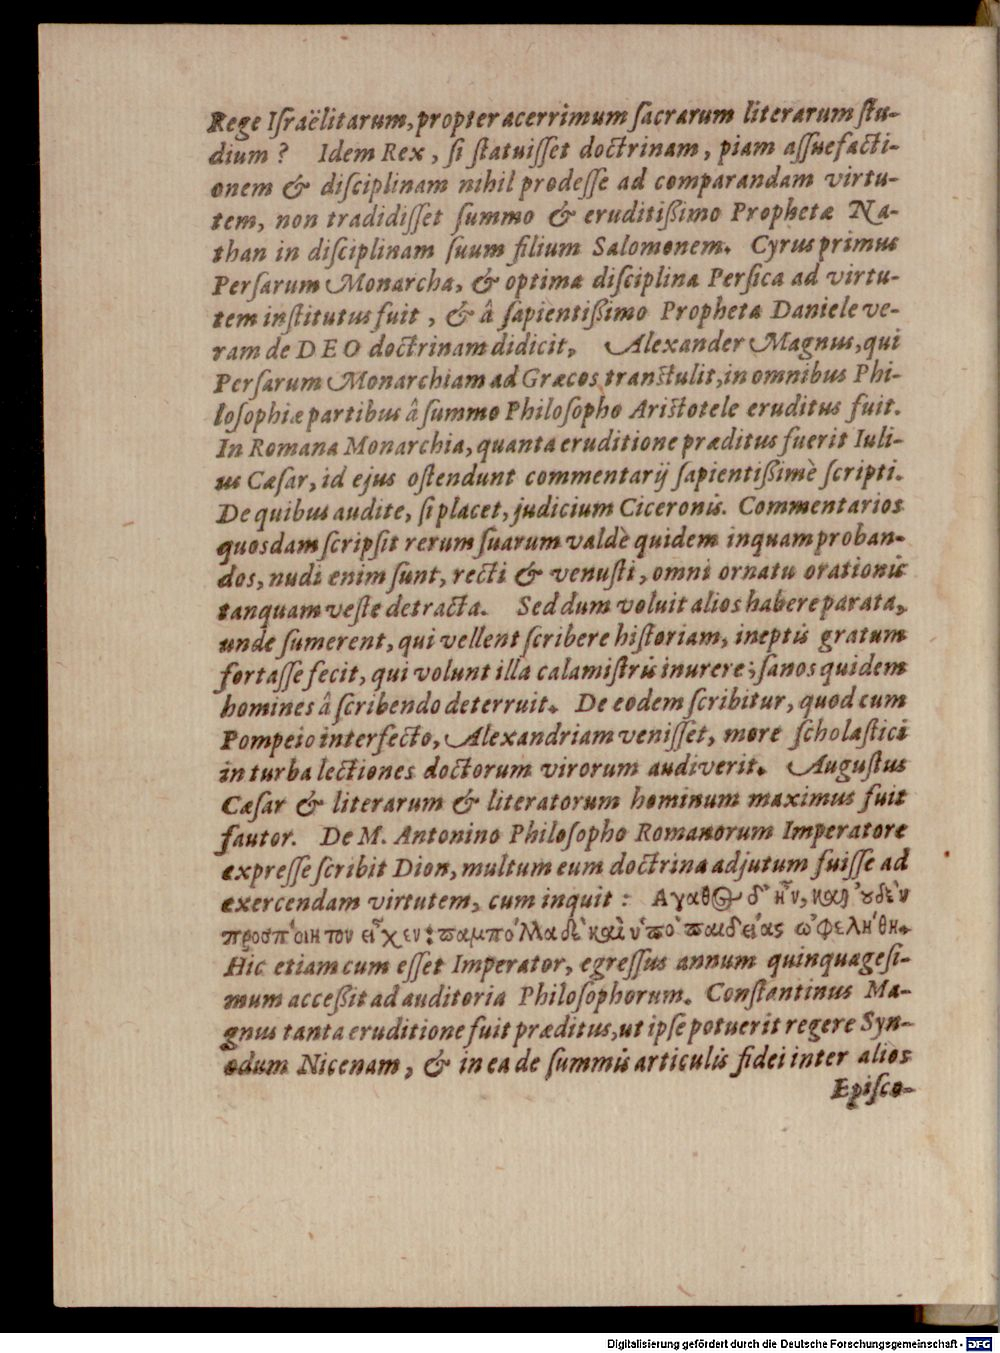 Rege Iſraëlitarum, propter acerrimum ſacrarum literarum ſtu-
dium ? Idem Rex, ſi ſtatuiſſet doctrinam, piam aſſuefacti-
onem & diſciplinam nihil prodeſſe ad comparandam virtu-
tem, non tradidiſſet ſummo & eruditißimo Prophetæ Na-
than in diſciplinam ſuum filium Salomonem. Cyrus primus
Perſarum Monarcha, & optima diſciplina Perſica ad virtu-
tem inſtitutus fuit, & â ſapientißimo Propheta Daniele ve-
ram de DEO doctrinam didicit. Alexander Magnus, qui
Perſarum Monarchiam ad Græcos tranſtulit, in omnibus Phi-
loſophiæ partibus â ſummo Philoſopho Ariſtotele eruditus fuit.
In Romana Monarchia, quanta eruditione præditus fuerit Iuli-
us Cæſar, id ejus oſtendunt commentarij ſapientißimè ſcripti.
De quibus audite, ſi placet, judicium Ciceronis. Commentarios
quosdam ſcripſit rerum ſuarum valdè quidem inquam proban-
dos, nudi enim ſunt, recti & venuſti, omni ornatu orationis
tanquam veſte detracta. Sed dum voluit alios habere parata,
unde ſumerent, qui vellent ſcribere hiſtoriam, ineptis gratum
fortaſſe fecit, qui volunt illa calamiſtris inurere; ſanos quidem
homines â ſcribendo deterruit. De eodem ſcribitur, quod cum
Pompeio interfecto, Alexandriam veniſſet, more ſcholaſtici
in turba lectiones doctorum virorum audiverit. Auguſtus
Cæſar & literarum & literatorum hominum maximus fuit
fautor. De M. Antonino Philoſopho Romanorum Imperatore
expreſſe ſcribit Dion, multum eum doctrina adjutum fuiſſe ad
exercendam virtutem, cum inquit : Αγαθος δ' ἦν, καὶ ȣδὲν
προσποίητον εἶχεν: παμπόλλα δὲ καὶ ὑπὸ παιδείας ὠφελήθη.
Hic etiam cum eſſet Imperator, egreſſus annum quinquageſi-
mum acceßit ad auditoria Philoſophorum. Conſtantinus Ma-
gnus tanta eruditione fuit præditus, ut ipſe potuerit regere Syn-
odum Nicenam, & in ea de ſummis articulis fidei inter alios
Epiſco-
Digitalisierung gefördert durch die Deutsche Forschungsgemeinschaft - DFG